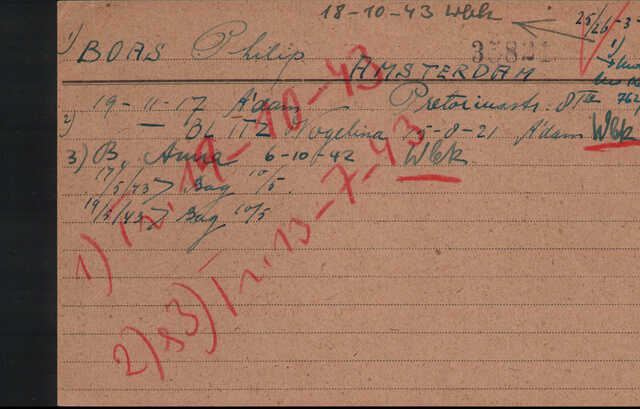 18-10-43 Wbk
25/26-3-
1) BOAS Philip 35821 1/
AMSTERDAM
19-11-17 A'dam — Pretoriusstr. 8 III 762
2) — BLITZ Vogelina 15-8-21 A'dam Wbk
3) B, Anna 6-10-42 Wbk
17/5/43 > Bag 10/5.
19/5/43 > Bag 10/5
1) Tr. 19-10-43
2) & 3) Tr. 13-7-43